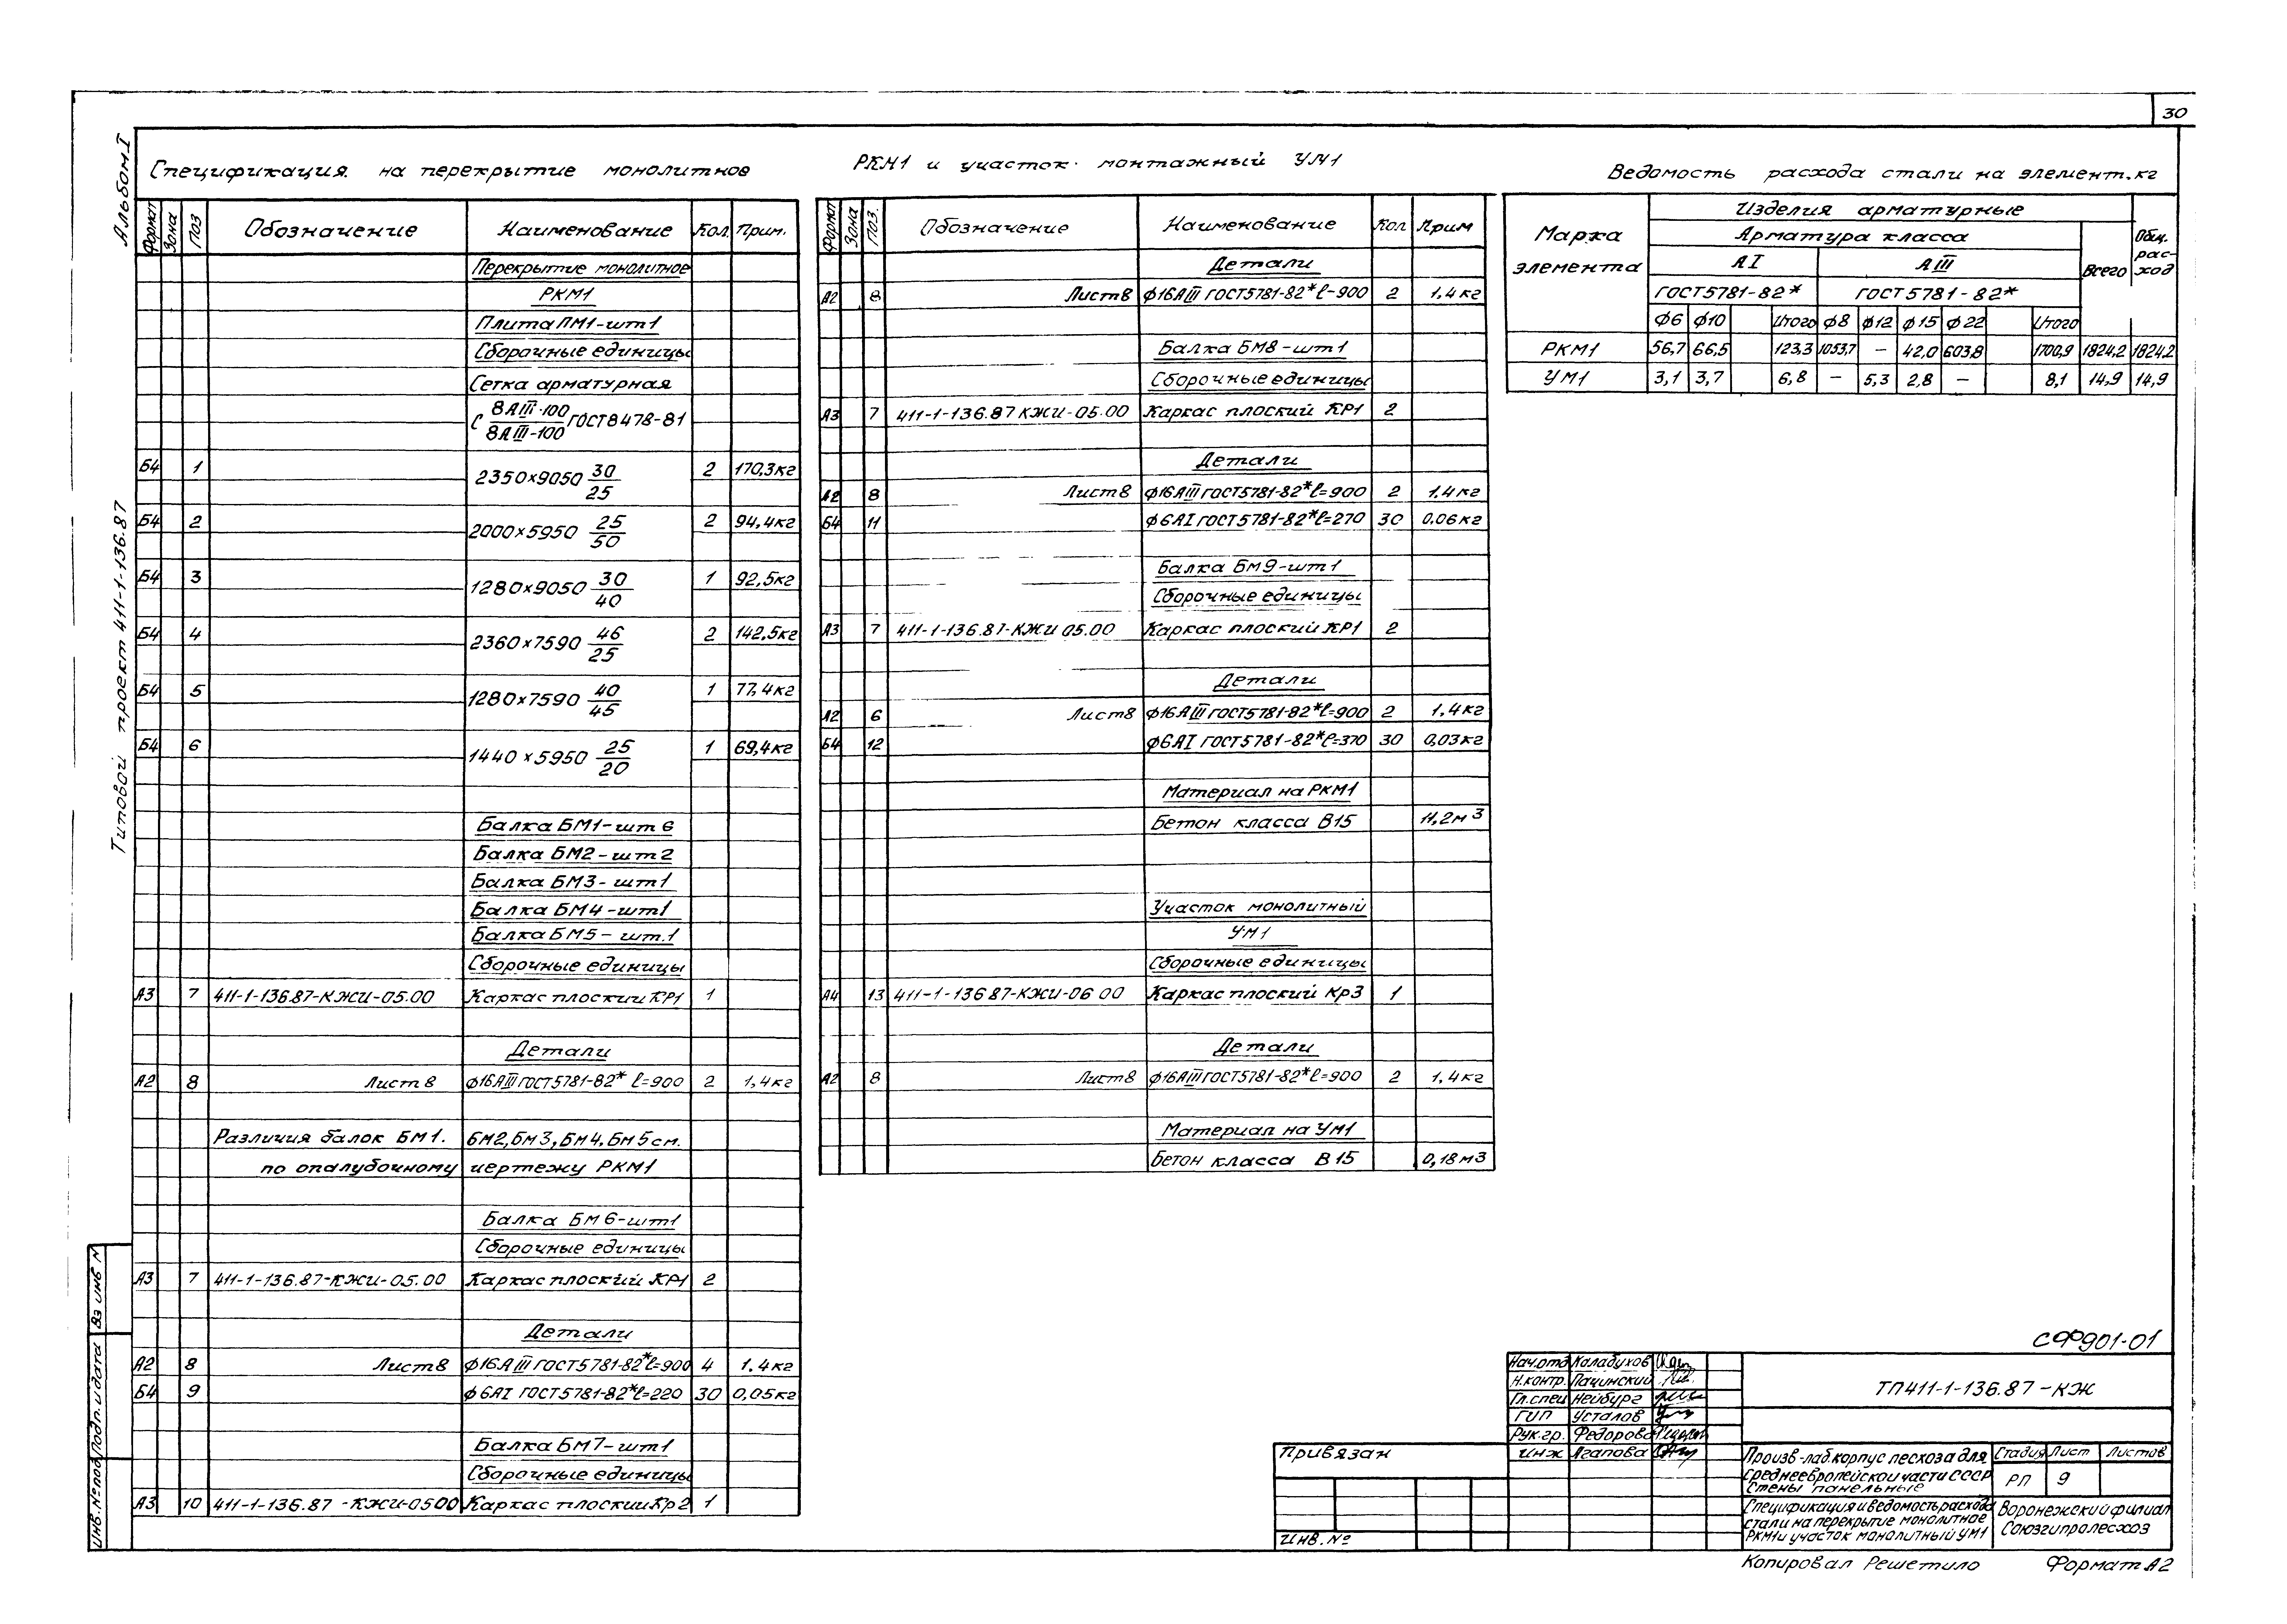 30
Альбом I
Типовой проект 411-1-136.87
Спецификация на перекрытие монолитное РКМ1 и участок монтажный УМ1
Формат Зона Поз Обозначение Наименование Кол. Прим.
Перекрытие монолитное
РКМ1
Плита ПМ1-шт1
Сборочные единицы
Сетка арматурная
С 8АIII-100/8АIII-100 ГОСТ8478-81
Б4 1 2350×9050 30/25 2 170,3кг
Б4 2 2000×5950 25/50 2 94,4кг
Б4 3 1280×9050 30/40 1 92,5кг
Б4 4 2360×7590 46/25 2 142,5кг
Б4 5 1280×7590 40/45 1 77,4кг
Б4 6 1440×5950 25/20 1 69,4кг
Балка БМ1-шт 6
Балка БМ2-шт 2
Балка БМ3-шт1
Балка БМ4-шт1
Балка БМ5-шт.1
Сборочные единицы
А3 7 411-1-136.87-КЖИ-05.00 Каркас плоский КР1 1
Детали
А2 8 Лист 8 ф16АIII ГОСТ5781-82* ℓ=900 2 1,4кг
Различия балок БМ1. БМ2, БМ3, БМ4, БМ5 см.
по опалубочному чертежу РКМ1
Балка БМ6-шт1
Сборочные единицы
А3 7 411-1-136.87-КЖИ-05.00 Каркас плоский КР1 2
Детали
А2 8 Лист 8 ф16АIII ГОСТ5781-82* ℓ=900 4 1.4кг
Б4 9 ф6АI ГОСТ5781-82* ℓ=220 30 0,05кг
Балка БМ7-шт1
Сборочные единицы
А3 10 411-1-136.87-КЖИ-0500 Каркас плоский Кр2 1
Формат Зона Поз. Обозначение Наименование Кол Прим
Детали
А2 8 Лист 8 ф16АIII ГОСТ5781-82* ℓ-900 2 1,4кг
Балка БМ8-шт1
Сборочные единицы
А3 7 411-1-136.87 КЖИ-05.00 Каркас плоский КР1 2
Детали
А2 8 Лист 8 ф16АIII ГОСТ5781-82* ℓ=900 2 1.4кг
Б4 11 ф6АI ГОСТ5781-82* ℓ=270 30 0.06кг
Балка БМ9-шт1
Сборочные единицы
А3 7 411-1-136.87-КЖИ 05.00 Каркас плоский КР1 2
Детали
А2 6 Лист 8 ф16АIII ГОСТ5781-82* ℓ=900 2 1,4кг
Б4 12 ф6АI ГОСТ5781-82* ℓ=370 30 0,03кг
Материал на РКМ1
Бетон класса В15 11,2м3
Участок монолитный
УМ1
Сборочные единицы
А4 13 411-1-136 87-КЖИ-06 00 Каркас плоский Кр3 1
Детали
А2 8 Лист 8 ф16АIII ГОСТ5781-82* ℓ=900 2 1.4кг
Материал на УМ1
Бетон класса В15 0,18м3
Ведомость расхода стали на элемент.кг
Марка элемента
Изделия арматурные
Арматура класса
АI АIII
ГОСТ5781-82* ГОСТ5781-82*
Всего
Общ. рас- ход
ф6 ф10 Итого ф8 ф12 ф15 ф22 Итого
РКМ1 56,7 66,5 123.3 1053,7 — 42,0 603,8 1700,9 1824,2 1824,2
УМ1 3,1 3,7 6,8 — 5,3 2,8 — 8,1 14,9 14,9
СФ901-01
Нач.отд Калабухов
Н.контр. Пачинский
Гл.спец Нейбург
ГИП Усталов
Рук.гр. Федорова
Инж Агапова
ТП411-1-136.87-КЖ
Произв-лаб.корпус лесхоза для
среднеевропейской части СССР
Стены панельные
Стадия Лист Листов
РП 9
Спецификация и ведомость расхода
стали на перекрытие монолитное
РКМ1 и участок монолитный УМ1
Воронежский филиал
Союзгипролесхоз
Привязан
Инв.№
Инв.№ под Подп. и дата Вз инв N
Копировал Решетило Формат А2